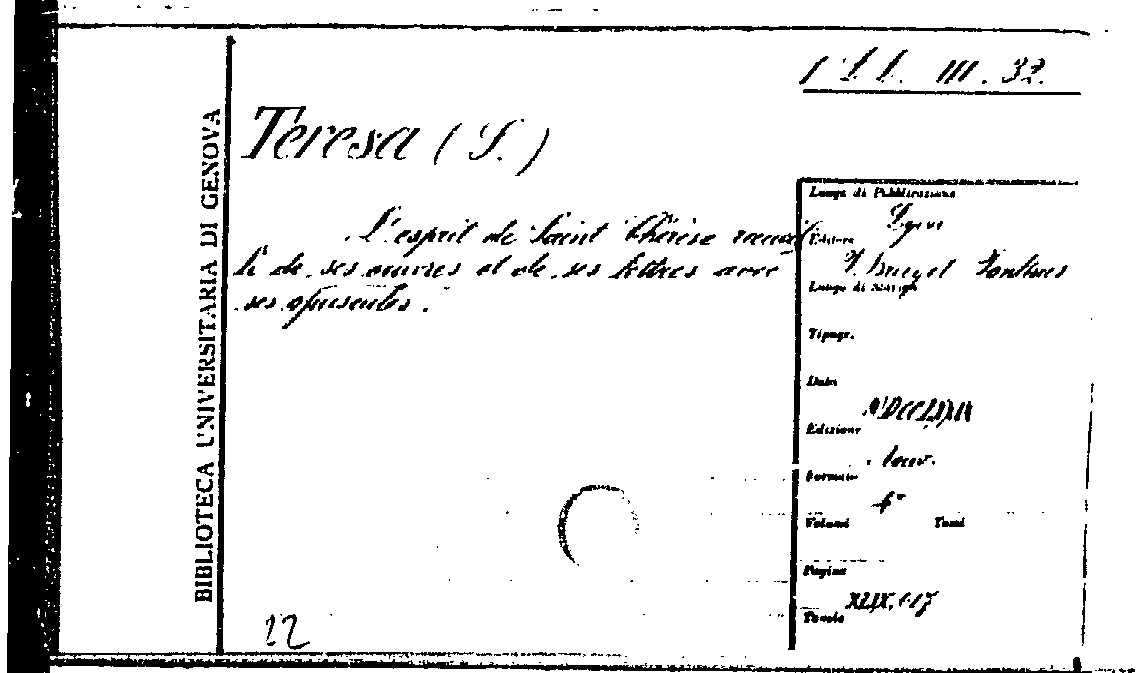 III. 32.
Teresa (S.)
L'esprit de Saint Thérèse recueil
li de ses œuvres et de ses lettres avec
ses opuscules.
BIBLIOTECA UNIVERSITARIA DI GENOVA
Luogo di Pubblicazione
Lyon
Editore
Luogo di Stampa
Tipogr.
Data
Edizione
Formato
Volumi Tomi
Pagine
XLIX,
Tavole
12